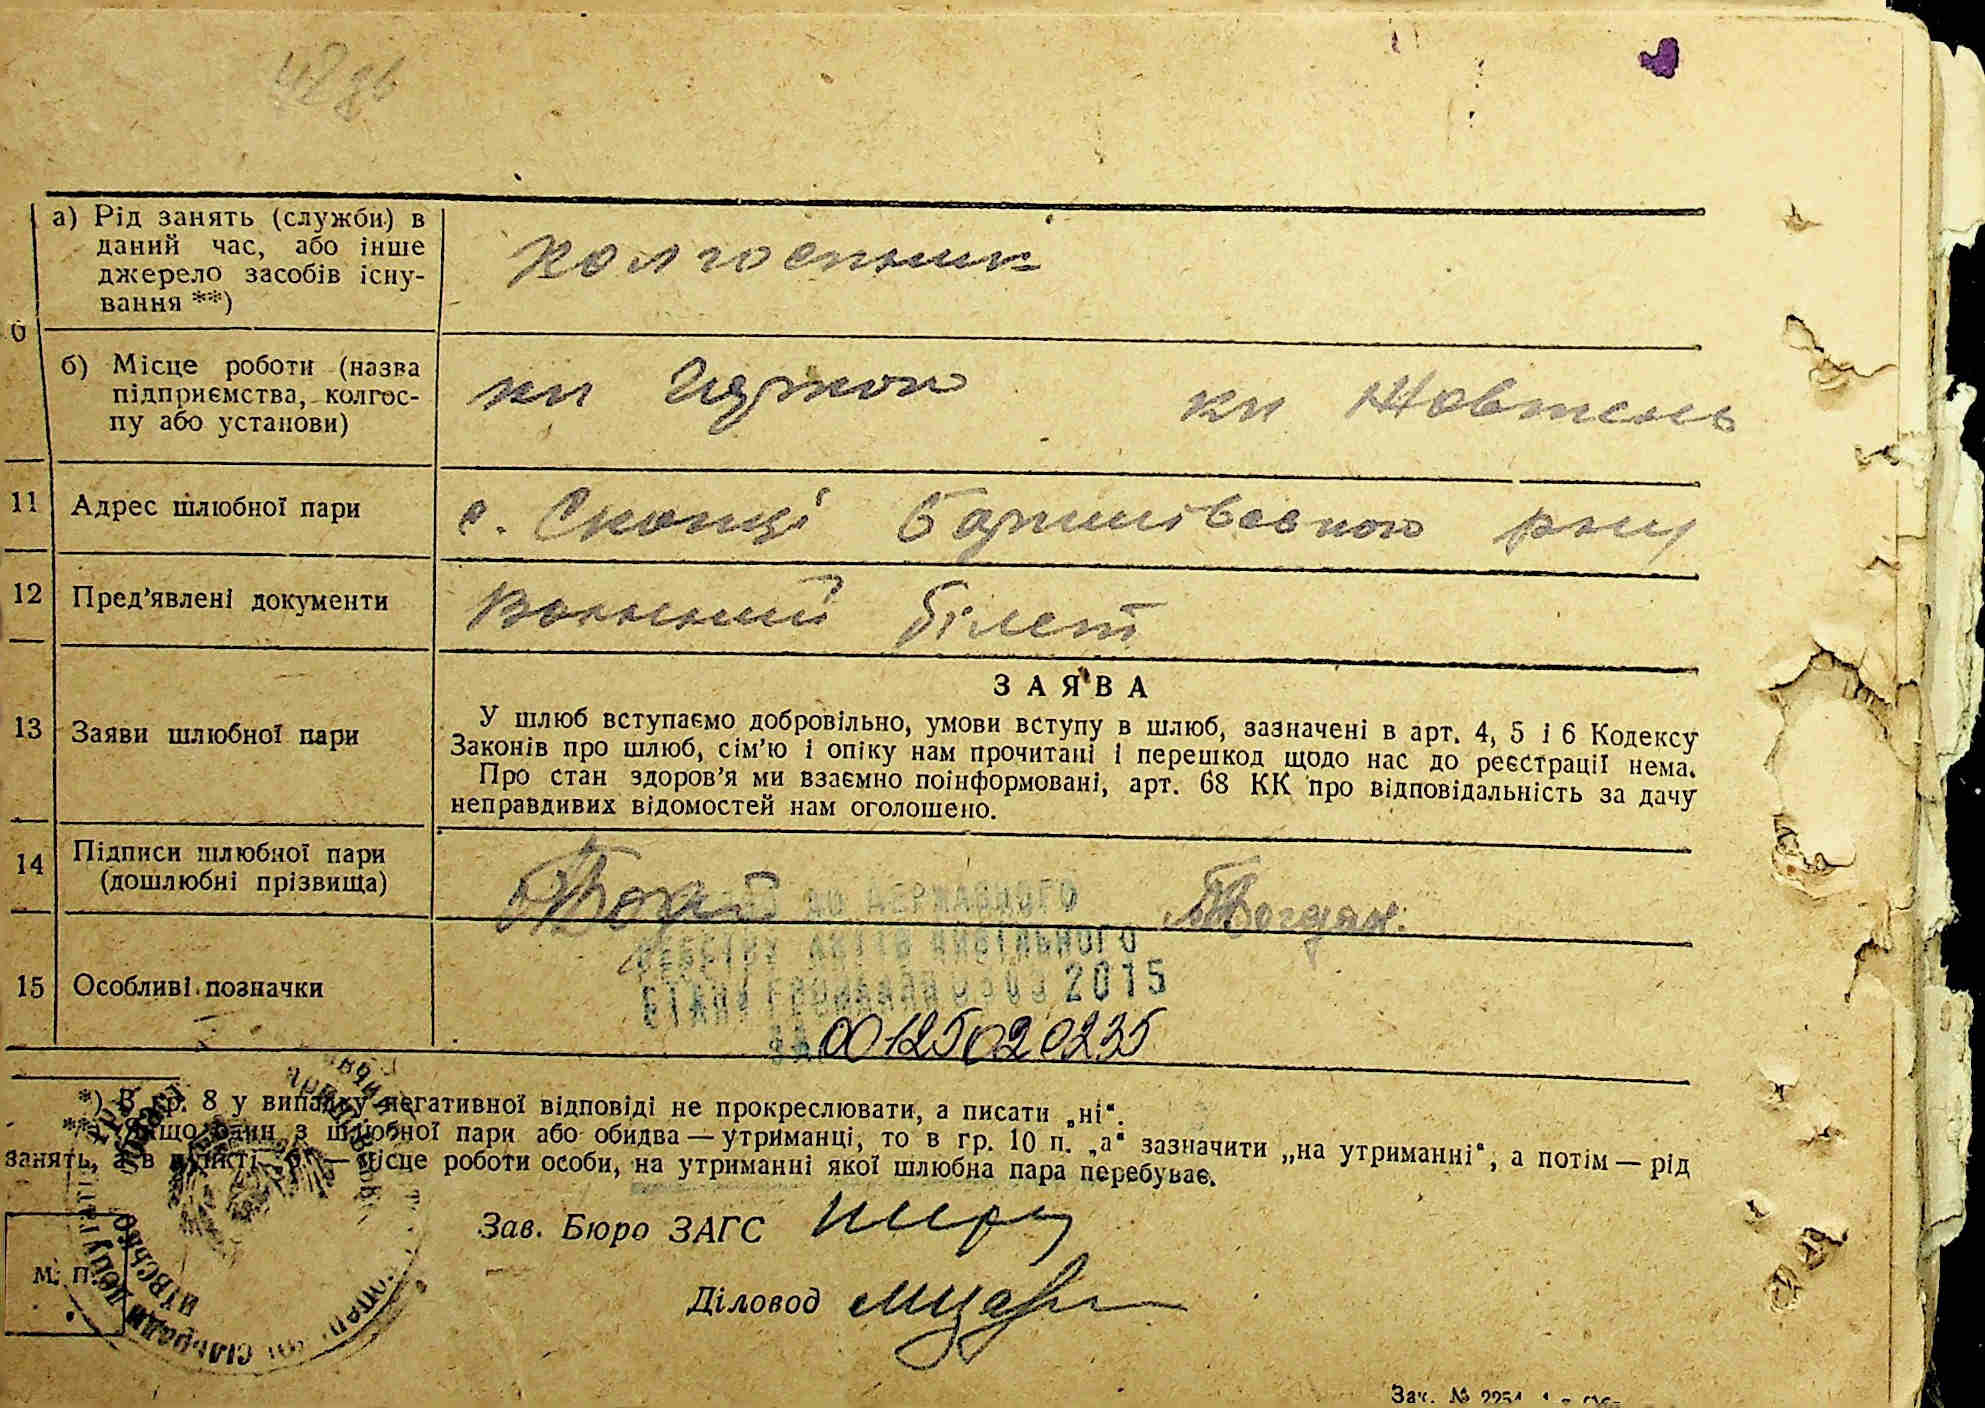 а) Рід занять (служби) в
даний час, або інше
джерело засобів існу-
вання **)
колгоспник
б) Місце роботи (назва
підприємства, колгос-
пу або установи)
кп кп Жовтень
11 Адрес шлюбної пари
с. Скопці Баришівського р-ну
12 Пред'явлені документи
Воєнний білет
13 Заяви шлюбної пари
ЗАЯВА
У шлюб вступаємо добровільно, умови вступу в шлюб, зазначені в арт. 4, 5 і 6 Кодексу
Законів про шлюб, сім'ю і опіку нам прочитані і перешкод щодо нас до реєстрації нема.
Про стан здоров'я ми взаємно поінформовані, арт. 68 КК про відповідальність за дачу
неправдивих відомостей нам оголошено.
14 Підписи шлюбної пари
(дошлюбні прізвища)
Богдан
ДО ДЕРЖАВНОГО
РЕЄСТРУ АКТІВ ЦИВІЛЬНОГО
СТАНУ ГРОМАДЯН 0303 2015
ЗА 00125020235
15 Особливі позначки
*) В гр. 8 у випадку негативної відповіді не прокреслювати, а писати „ні".
**) Якщо один з шлюбної пари або обидва — утриманці, то в гр. 10 п. „а" зазначити „на утриманні", а потім — рід
занять, а в пункті „б" — місце роботи особи, на утриманні якої шлюбна пара перебуває.
Зав. Бюро ЗАГС
М. П.
Діловод
Зач. № 2254